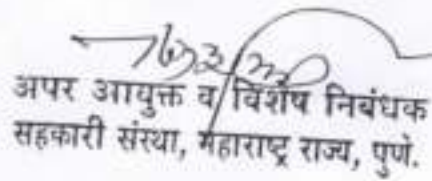 अपर आयुक्त व विशेष निबंधक
सहकारी संस्था, महाराष्ट्र राज्य, पुणे.